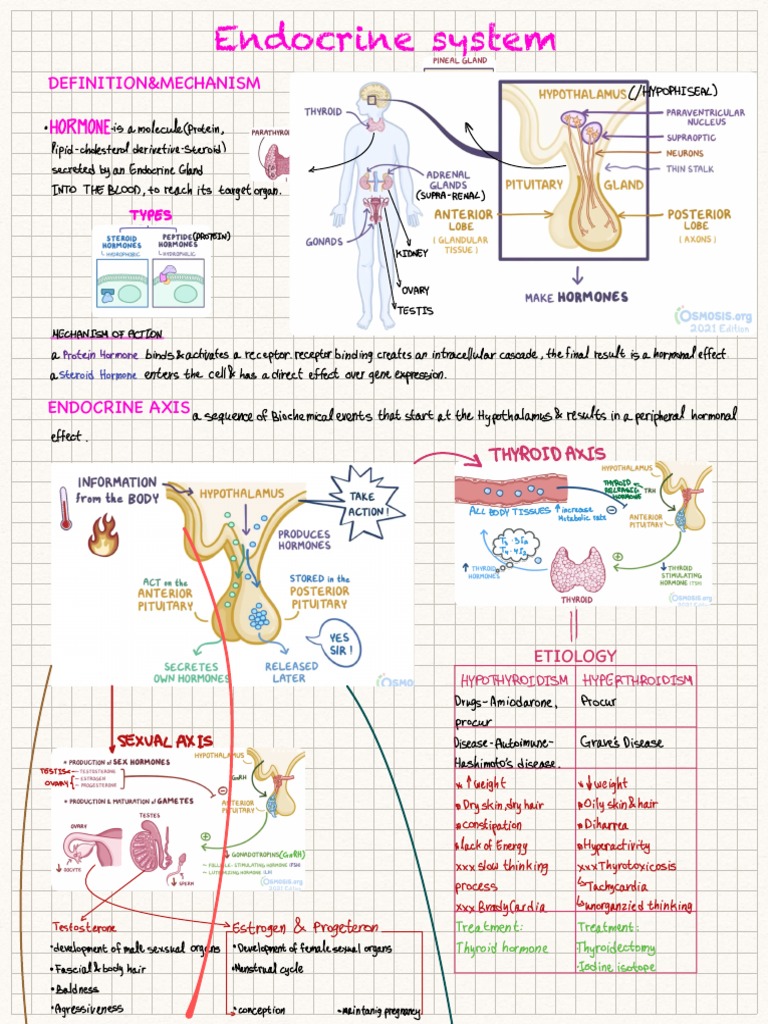 Endocrine system
PINEAL GLAND
DEFINITION&MECHANISM
•HORMONE-is a molecule(Protein,
lipid-cholesterol derivetive-Steroid)
secreted by an Endocrine Gland
INTO THE BLOOD, to reach its target organ.
PARATHYRO
TYPES
STEROID HORMONES
HYDROPHOBIC
PEPTIDE(PROTEIN)
HORMONES
HYDROPHILIC
THYROID
ADRENAL GLANDS
(SUPRA-RENAL)
GONADS
KIDNEY
OVARY
TESTIS
HYPOTHALAMUS(/HYPOPHISEAL)
PARAVENTRICULAR NUCLEUS
SUPRAOPTIC
NEURONS
THIN STALK
PITUITARY GLAND
ANTERIOR LOBE
(GLANDULAR TISSUE)
POSTERIOR LOBE
(AXONS)
MAKE HORMONES
OSMOSIS.org
2021 Edition
MECHANISM OF ACTION
a Protein Hormone binds & activates a receptor. receptor binding creates an intracellular cascade, the final result is a hormonal effect.
a Steroid Hormone enters the cell & has a direct effect over gene expression.
ENDOCRINE AXIS a sequence of Biochemical events that start at the Hypothalamus & results in a peripheral hormonal
effect.
INFORMATION
from the BODY
HYPOTHALAMUS
TAKE ACTION!
PRODUCES HORMONES
ACT on the ANTERIOR PITUITARY
STORED in the POSTERIOR PITUITARY
YES SIR!
SECRETES OWN HORMONES
RELEASED LATER
OSMO
THYROID AXIS
HYPOTHALAMUS
THYROID RELEASING HORMONE
TRH
ALL BODY TISSUES
↑ increase Metabolic rate
ANTERIOR PITUITARY
T3
T4
↑ THYROID HORMONES
THYROID
THYROID STIMULATING HORMONE (TSH)
OSMOSIS.org
ETIOLOGY
HYPOTHYROIDISM
HYPERTHROIDISM
Drugs-Amiodarone,
procur
Procur
Disease-Autoimune-
Hashimoto's disease.
Grave's Disease
↑ weight
Dry skin, dry hair
constipation
lack of Energy
xxx slow thinking
process
xxx BradyCardia
↓ weight
Oily skin & hair
Diharrea
Hyperactivity
xxx Thyrotoxicosis
Tachycardia
unorganzied thinking
Treatment:
Thyroid hormone
Treatment:
Thyroidectomy
Iodine isotope
SEXUAL AXIS
PRODUCTION of SEX HORMONES
TESTIS
TESTOSTERONE
OVARY
ESTROGEN
PROGESTERONE
PRODUCTION & MATURATION of GAMETES
OVARY
TESTES
OOCYTE
SPERM
HYPOTHALAMUS
GnRH
ANTERIOR PITUITARY
GONADOTROPINS(GnRH)
FOLLICLE-STIMULATING HORMONE (FSH)
LUTEINIZING HORMONE (LH)
Testosterone
•development of male sexsual organs
•Fascial & body hair
•Baldness
•Agressiveness
Estrogen & Progeteron
•Development of female sexual organs
•Menstrual cycle
•conception
•maintanig pregnancy